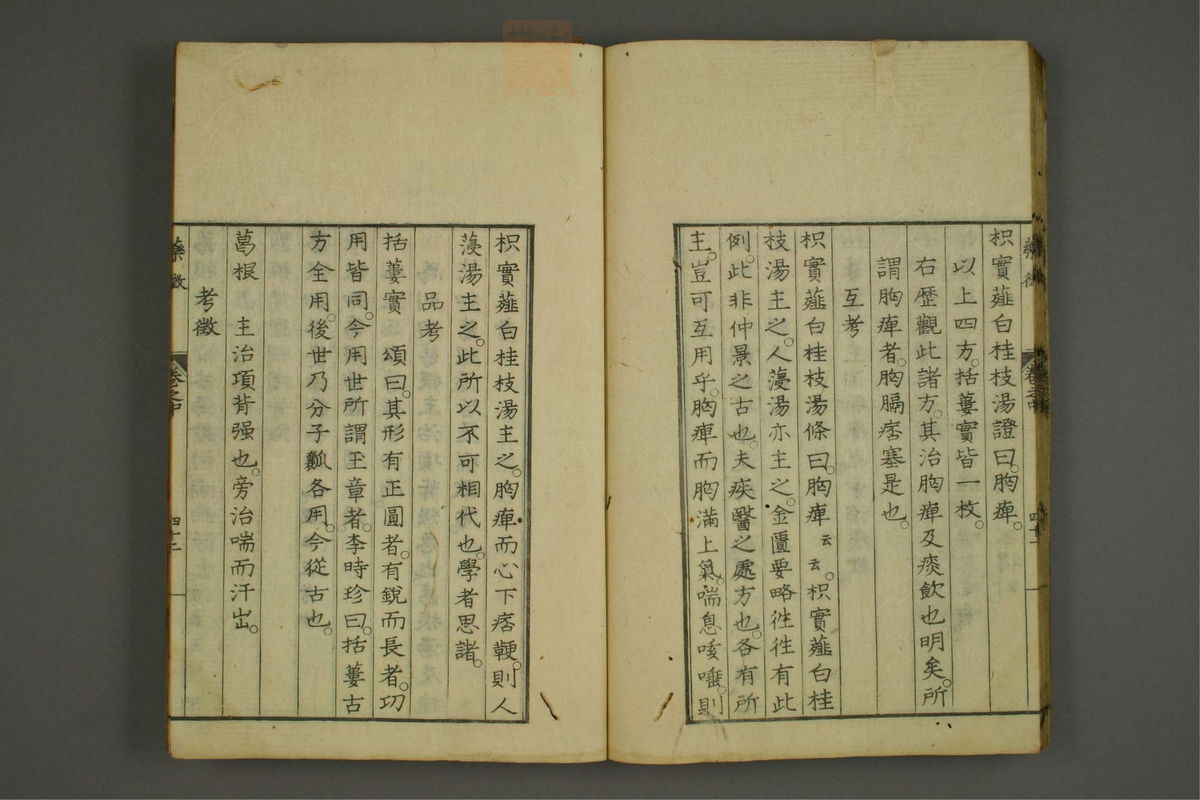 藥徵
卷之中
四十一
枳實薤白桂枝湯證曰。胸痺。
以上四方。括蔞實皆一枚。
右歷觀此諸方。其治胸痺及痰飲也明矣。所
謂胸痺者。胸膈痞塞是也。
互考
枳實薤白桂枝湯條曰。胸痺云云。枳實薤白桂
枝湯主之。人薓湯亦主之。金匱要略徃徃有此
例。此非仲景之古也。夫疾醫之處方也。各有所
主。豈可互用乎。胸痺而胸滿上氣。喘息咳唾。則
枳實薤白桂枝湯主之。胸痺而心下痞鞕。則人
薓湯主之。此所以不可相代也。學者思諸。
品考
括蔞實 頌曰。其形有正圓者。有銳而長者。功
用皆同。今用世所謂玉章者。李時珍曰。括蔞古
方全用。後世乃分子瓤各用。今從古也。
葛根 主治項背强也。旁治喘而汗出。
考徵
藥徵
卷之中
四十二